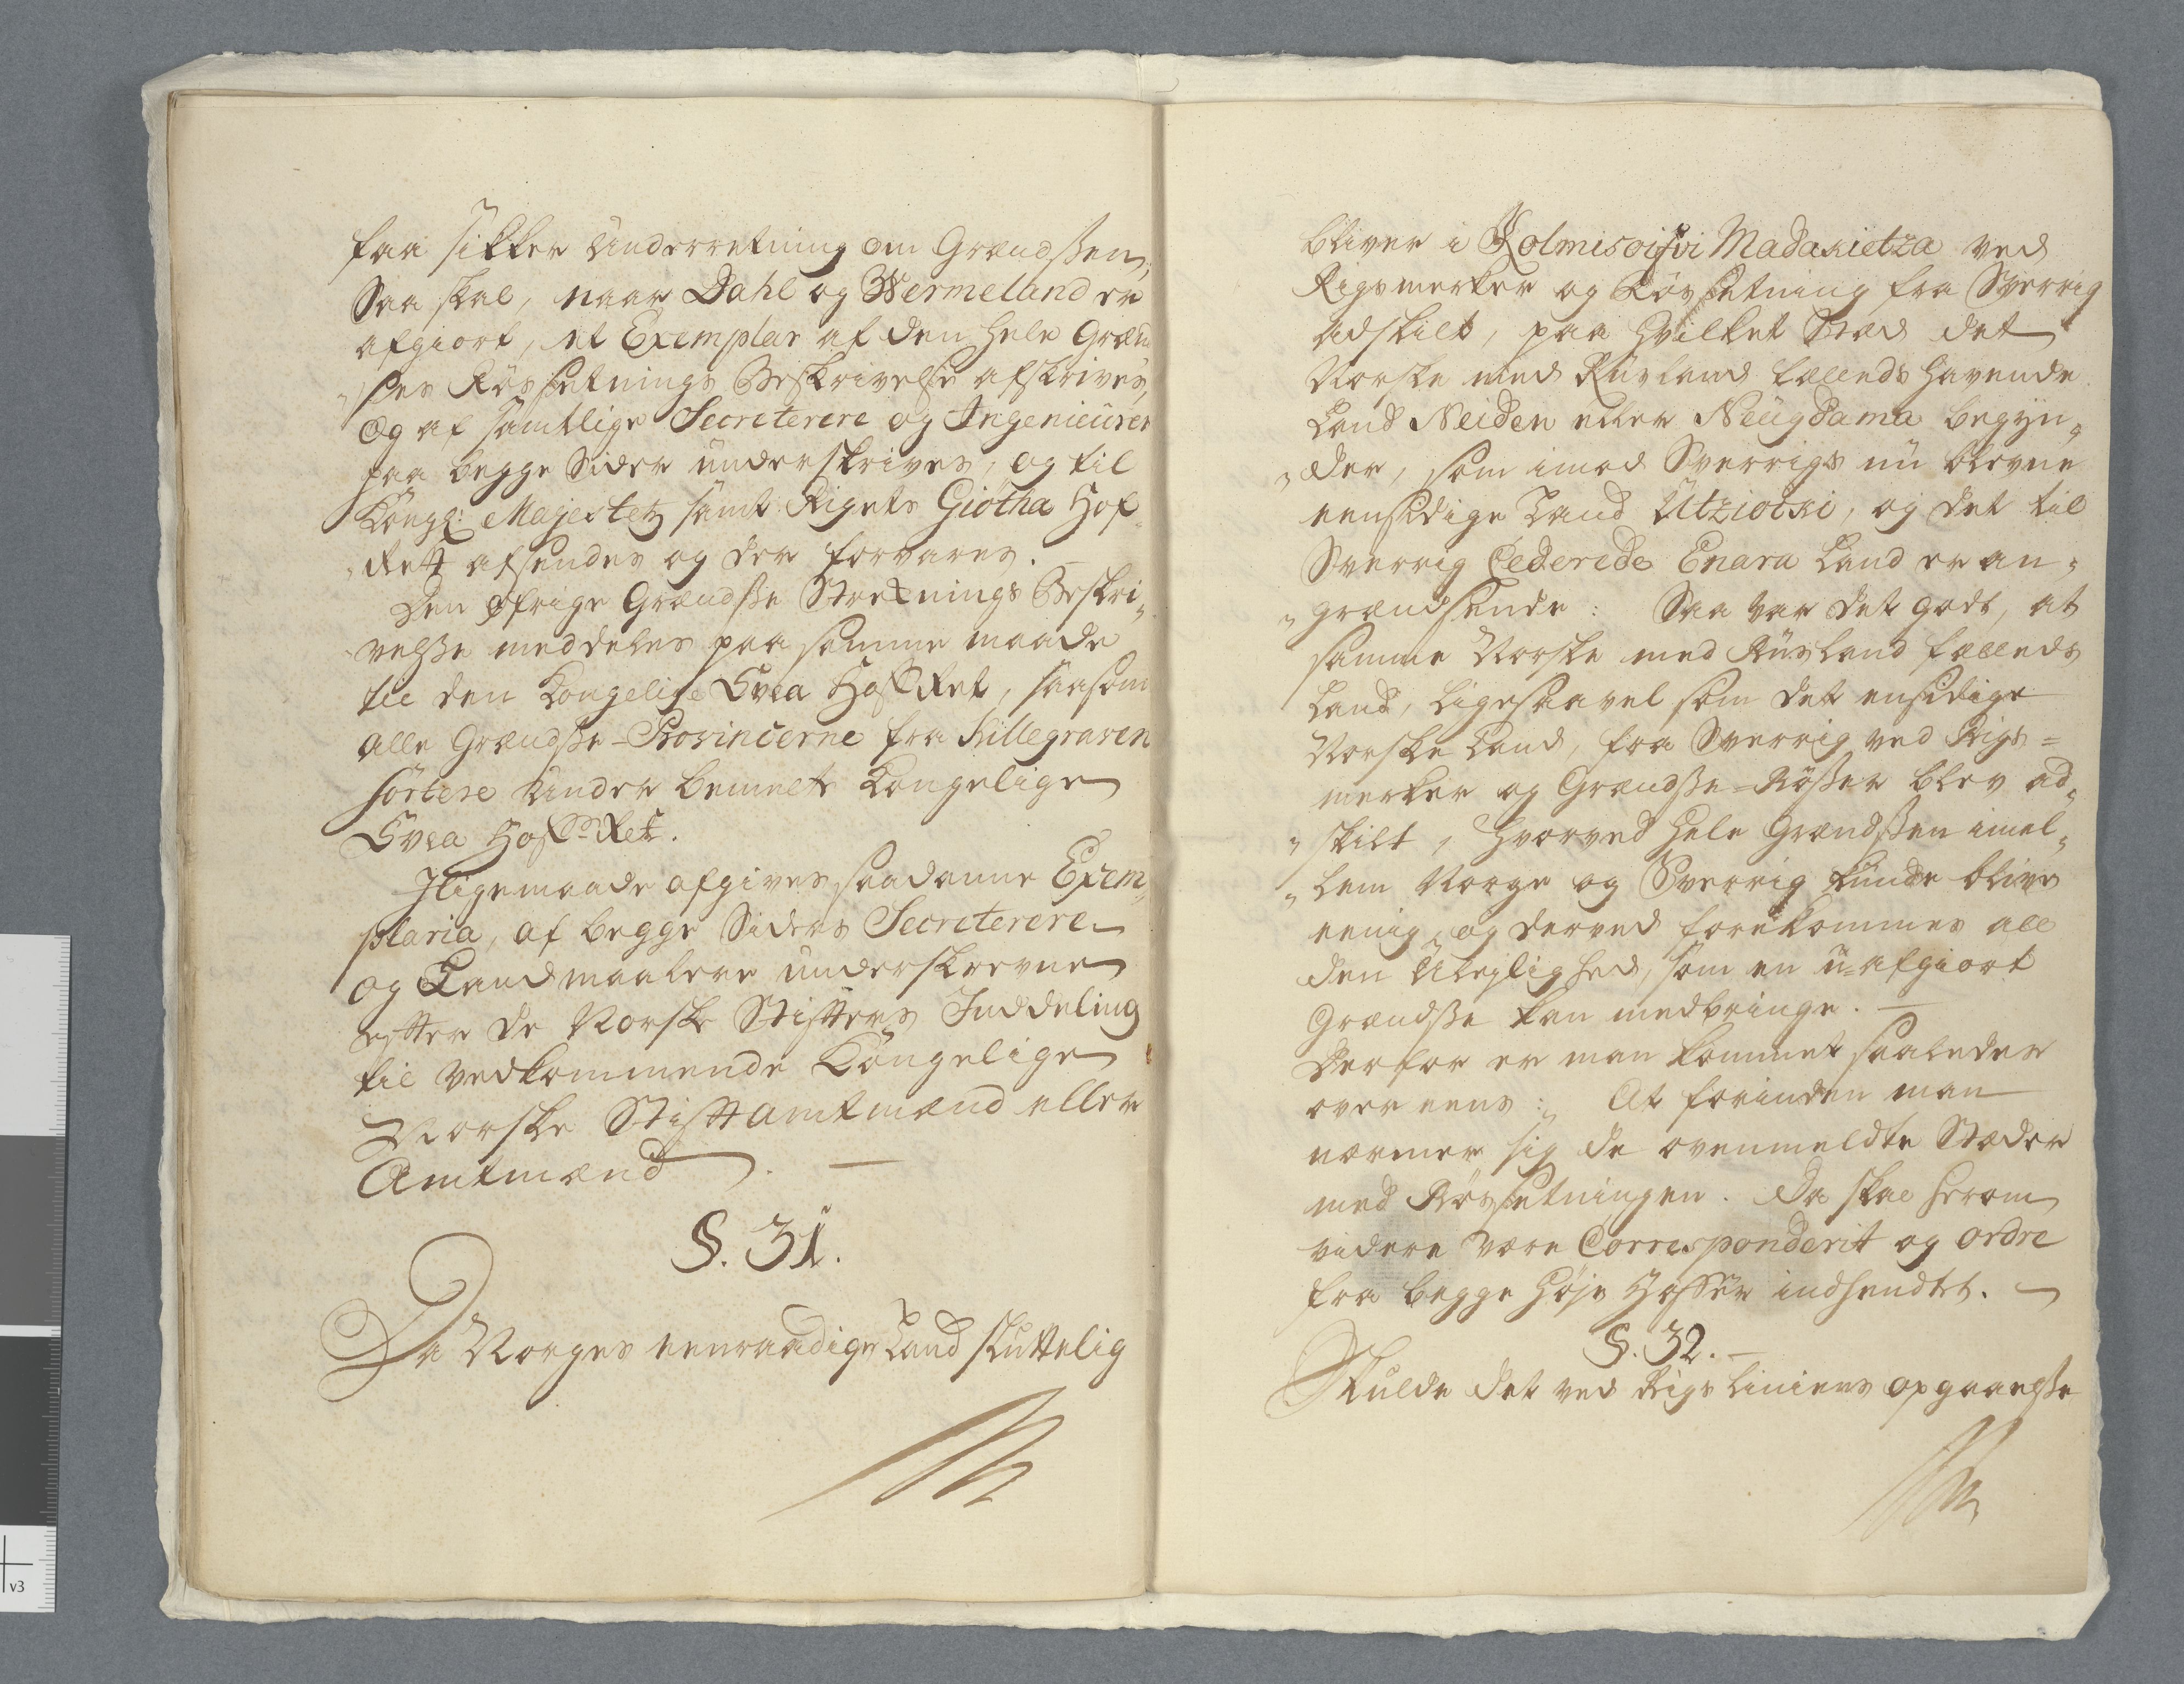 faa sikker Underretning om Grændssen,
Saa skal, naar Dahl og Wermeland er
afgiort, et Exemplar af den hele Grænd
„ses Rös sætnings Beskrivelse afskrives,
Og af samtlige Secreterere og Ingenieurer
paa begge Sider underskrives, og til
Kongl: Majestetz samt Rigets Giötha Hof
„Rett afsendes og der forvares.
Den øfrige Grændsse Streknings Beskri„
„velsse meddeles paa samme maade
til den Kongelige Svea Hoff Ret, saasom
alle Grændsse-Provincerne fra Hillegraven
sortere under bemelte Kongelige
Svea Hoff Ret.
Jligemaade afgives saadanne Exem„
plaria, af begge Siders Secreterere
og Landmaalere underskrevne
efter de Norske Stifters Inddeling
til vedkommende Kongelige
Norske Stiftamtmænd eller
Amtmænd. —
§. 31.
Da Norges eenraadige Land sluttelig
bliver i Kolmisoivi Madakietza ved
Rigsmerker og Rös sætning fra Sverrig
adskilt, paa hvilket Stæd det
Norske med Rusland fælleds havende
Land Neiden eller Neugdama begyn„
„der, som imod Sverrigs nu blevne
eensidige Land Utziocki, og det til
Sverrig Cederede Enara Land er an„
„grændsende: Saa var det godt, at
samme Norske med Rusland fælleds
Land, ligesaavel som det ensidige
Norske Land, fra Sverrig ved Rigs=
merker og Grændsse-Rösser blev ad„
„skilt, hvorved hele Grændssen imel„
„lem Norge og Sverrig kunde blive
eenig, og derved forekommes all
den Uleylighed, som en u-afgiort
Grændsse kan medbringe. —
Derfor er man kommet saaledes
over eens: At forinden man
nærmer sig de ovenmeldte Stæder
med Rös sætningen. Da skal herom
videre være Correspondérit og ordre
fra begge Høje Hoffer indhendtet. —
§. 32. —
Skulde det ved Rigs Liniens opgaaelsse